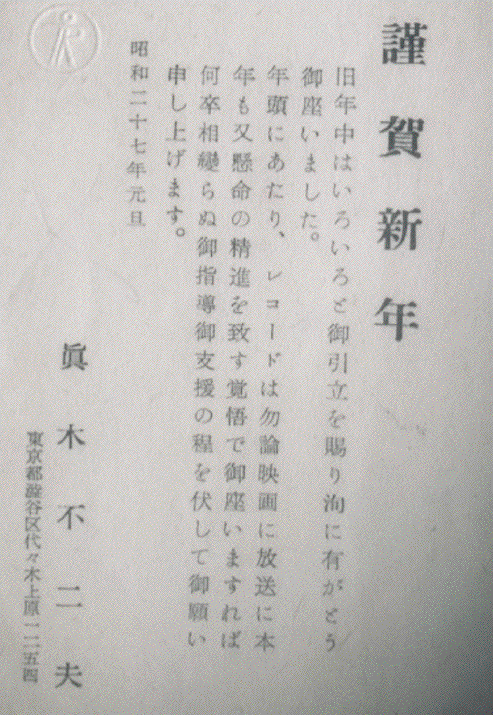 謹賀新年
旧年中はいろいろと御引立を賜り洵に有がとう
御座いました。
年頭にあたり、レコードは勿論映画に放送に本
年も又懸命の精進を致す覚悟で御座いますれば
何卒相變らぬ御指導御支援の程を伏して御願い
申し上げます。
昭和二十七年元旦
眞木不二夫
東京都澁谷区代々木上原一二五四